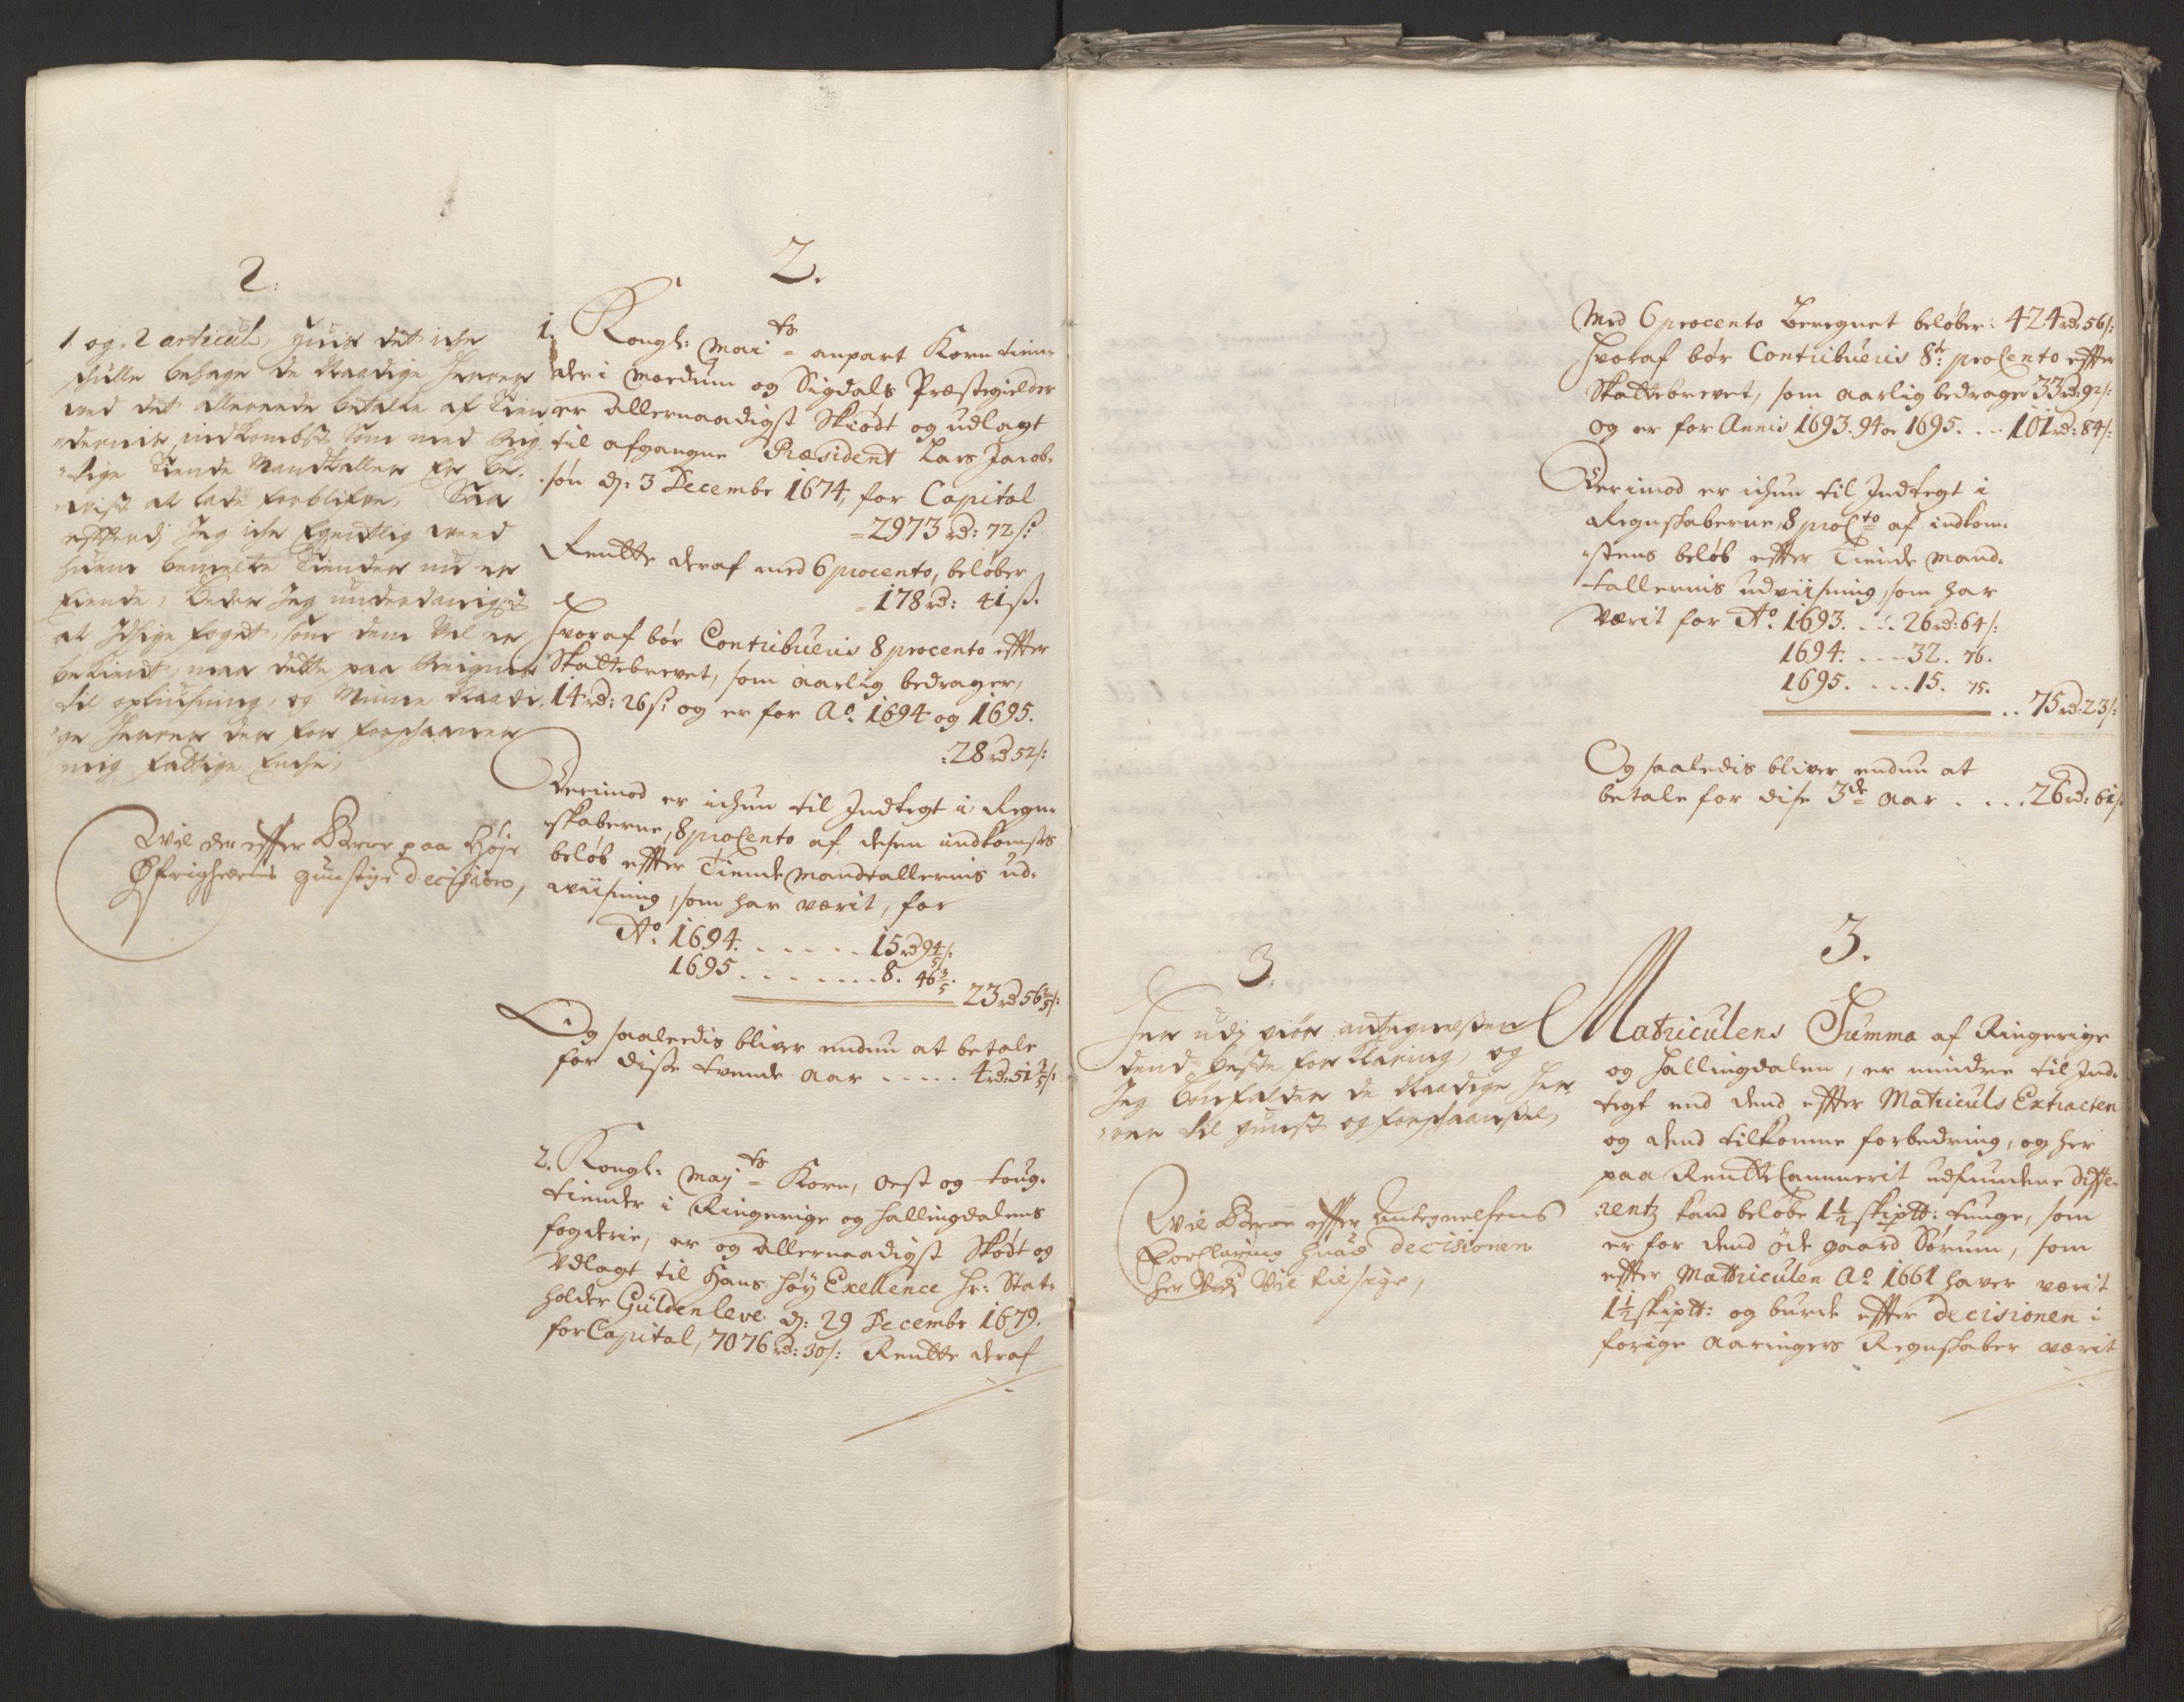 2.
1. og. 2 articul, huis det iche
skulle behage de Naadige Herrer
med det allerede betalte af Tien
dernis indkombst som med Aug-
tige Tiende Mandtaller er be-
wist at lade forblifve, Saa
efftersom Jeg iche Egentlig weed
huem bemelte Tiender nu er
Eiende, beder Jeg underdanigst
at Idtzige foged, som dem Vel er
bekiendt, maa dette paa
til oplysning, og Mine Naadi-
ge Herrer der for forschaaner
mig fattige Enche,
Wil der effter Beroe paa Høje
Øfrighedens gunstige decision,
2.
1. Kongl: Mai ts anpart Korn tien-
der i Moedum og Sigdals Præstegielder
er allernaadigst Skiødt og udlagt
til afgangne Præsident Lars Jacob-
søn d: 3 Decembr 1674, for Capital
2973 rd: 72 s:
Rentte deraf med 6 procento, beløber
178 rd: 41 s.
Hvoraf bør Contribueris 8 procento effter
Skattebrevet, som aarlig bedrager,
14 rd: 26 s: og er for Ao. 1694 og 1695.
28 rd 52 s:
Derimod er ichun til Indtegt i Regn-
skaberne, 8 procento af desen indkomsts
beløb effter Tiende Mandtallernis ud-
wiisning, som har værit, for
Ao. 1694. . . . . . 15 rd 94/5 s:
1695 . . . . . . . 8. 46 3/5.
23 rd 56 2/5 s:
Og saaledis bliver endnu at betale
for disse tvende aar . . . . . 4 rd: 51 3/5 s:
2. Kongl: May ts Korn, Ost og toug-
tiender i Ringerige og Hallingdalens
fogderie, er og allernaadigst Skiødt og
Udlagt til Hans Høy Exellence Hr: Stat-
holder Güldenleve d: 29 Decembr 1679.
for Capital, 7076 rd: 30 s: Rentte deraf
Med 6 procento Beregnet beløber: 424 rd: 56 s:
Hvoraf bør Contribueris 8 procento effter
Skattebrevet, som aarlig bedrager 33 rd: 92 s:
og er for Annis 1693. 94 oc 1695. . . 101 rd: 84 s:
Derimod er ichun til Indtegt i
Regnskaberne, 8 procto af indkom-
stens beløb effter Tiende Mand-
tallernis udviisning, som har
værit for Ao. 1693. . . . 26 rd: 64 s:
1694. . . . . 32. 76.
1695. . . . . 15. 75.
. . 75 rd: 23 s:
Og saaledis bliver endnu at
betale for dise 3de aar . . . . 26 rd: 61 s:
3.
Her udj giør antegnelsen
dend beste forklaring, og
Jeg bønfalder de Naadige Her-
rer til gunst og forschaansel,
Wil Beroe effter Antegnelsens
Forclaring huad decisionen
her Udj Vil tilsige,
3.
Matriculens Summa af Ringerige
og Hallingdalen, er mindre til Ind-
tegt end dend effter Matriculs Extracten
og dend tilkomne forbedring, og her
paa Rentte Cammerit udfundene diffe-
rentz kand beløbe 1 1/2 skiptt: tunge, som
er for dend øde gaard Sørum, som
effter Mattriculen Ao 1661 haver værit
1 1/2 skiptt: og burde effter decisionen i
forige aaringers Regnskaber værit